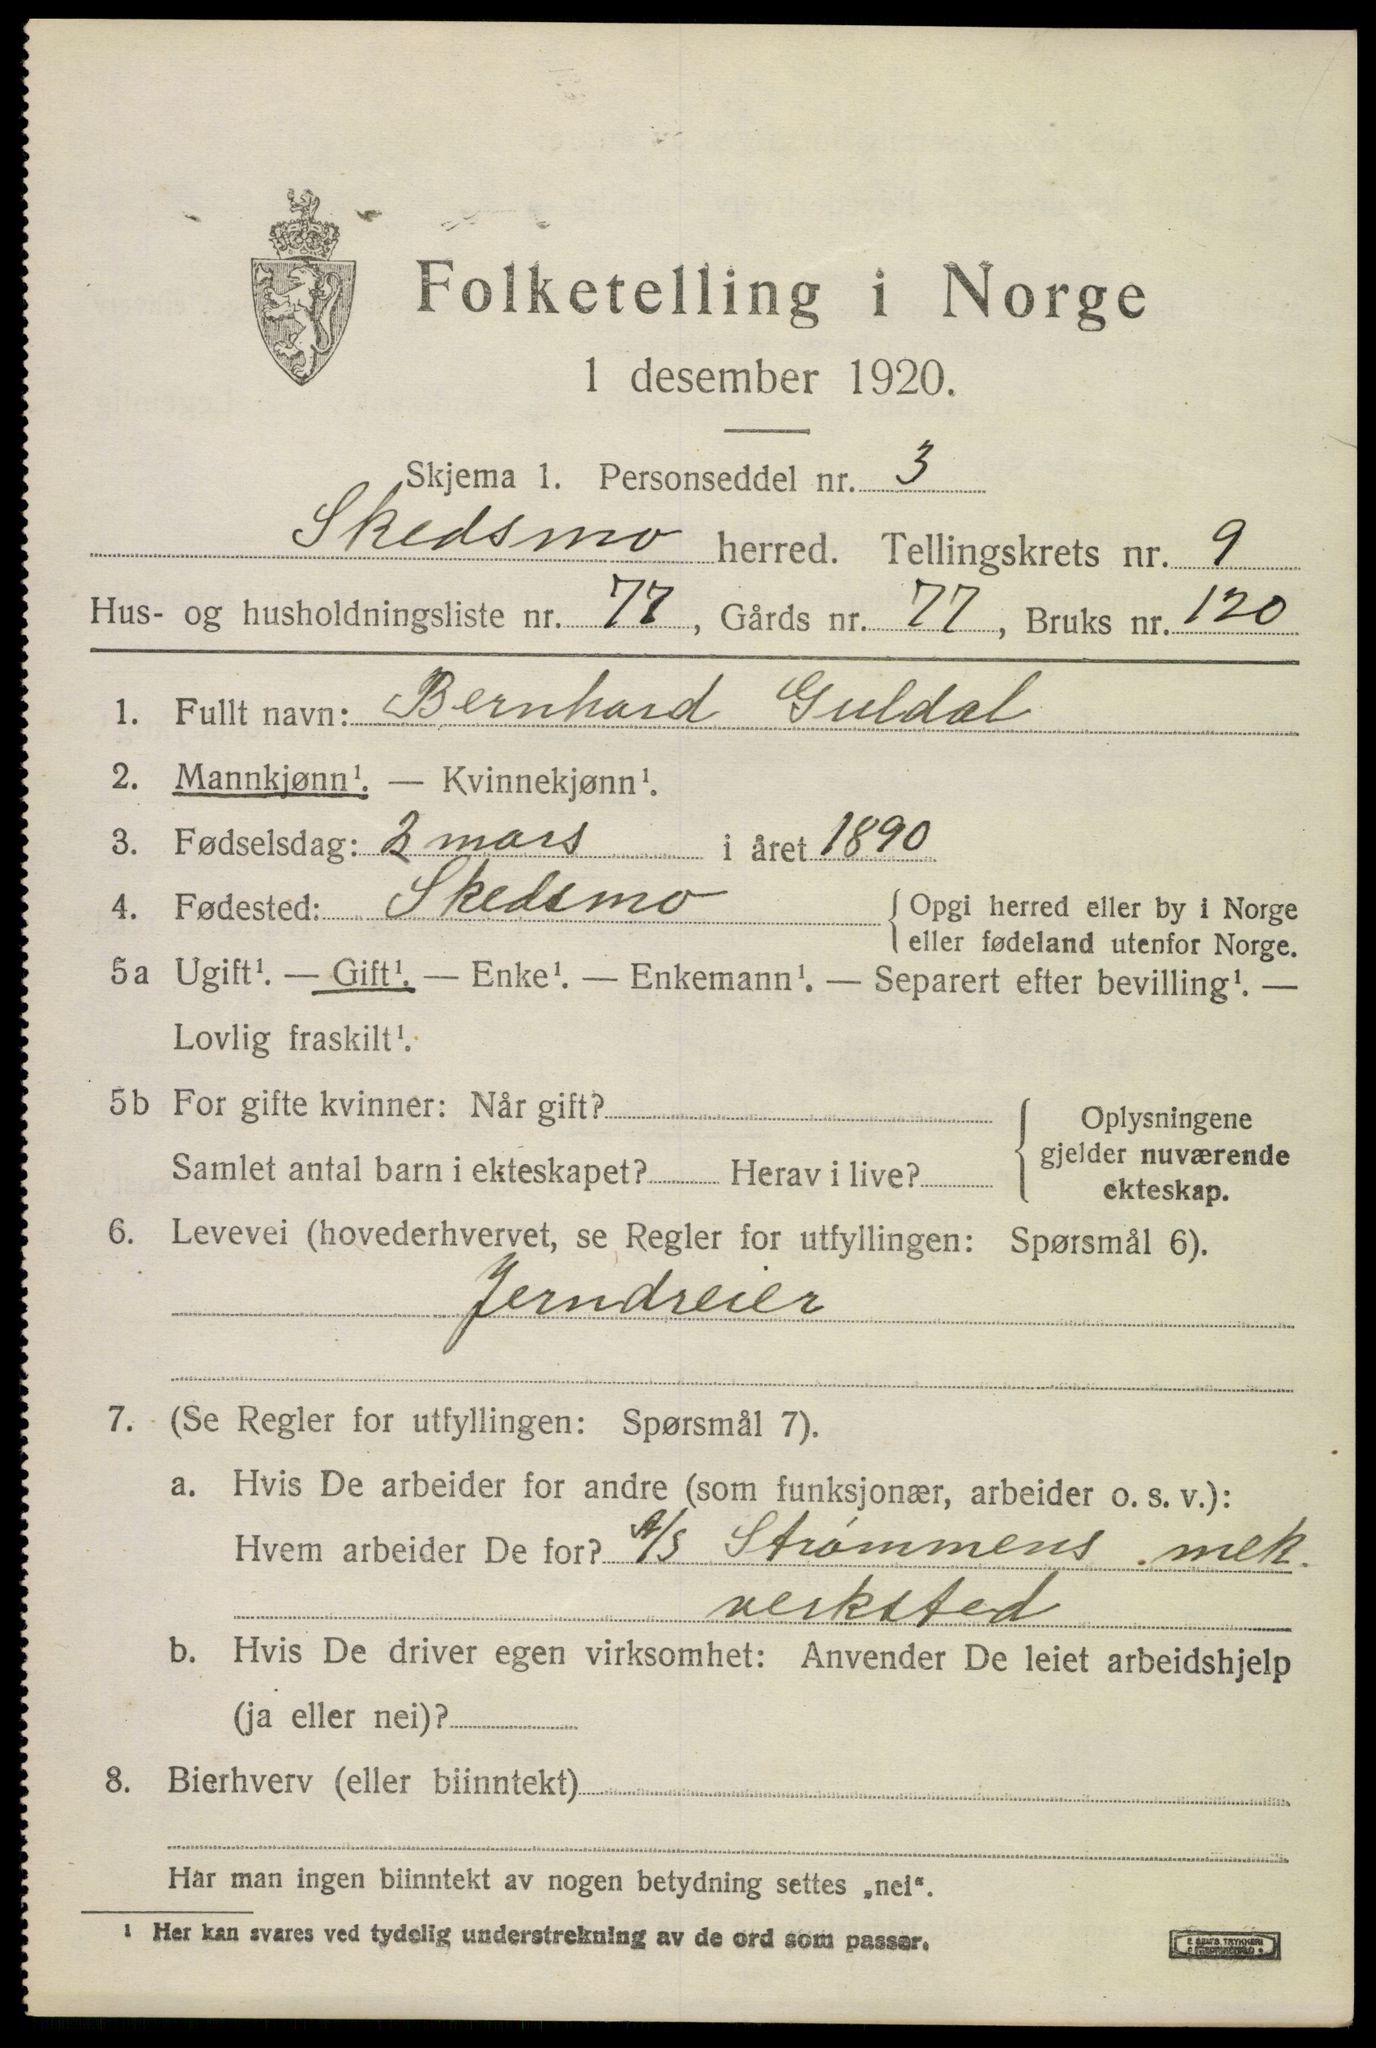 Folketelling i Norge
1 desember 1920.
Skjema 1. Personseddel nr. 3
Skedsmo herred. Tellingskrets nr. 9
Hus- og husholdningsliste nr. 77, Gårds nr. 77, Bruks nr. 120
1. Fullt navn: Bernhard Guldal
2. Mannkjønn¹. — Kvinnekjønn¹.
3. Fødselsdag: 2 mars i året 1890
4. Fødested: Skedsmo
Opgi herred eller by i Norge
eller fødeland utenfor Norge.
5a Ugift¹. — Gift¹. — Enke¹. — Enkemann¹. — Separert efter bevilling¹. —
Lovlig fraskilt¹.
5b For gifte kvinner: Når gift?
Samlet antal barn i ekteskapet? Herav i live?
Oplysningene
gjelder nuværende
ekteskap.
6. Levevei (hovederhvervet, se Regler for utfyllingen: Spørsmål 6).
Jerndreier
7. (Se Regler for utfyllingen: Spørsmål 7).
a. Hvis De arbeider for andre (som funksjonær, arbeider o. s. v.):
Hvem arbeider De for? A/S Strømmens mek.
verksted
b. Hvis De driver egen virksomhet: Anvender De leiet arbeidshjelp
(ja eller nei)?
8. Bierhverv (eller biinntekt)
Har man ingen biinntekt av nogen betydning settes „nei“.
¹ Her kan svares ved tydelig understrekning av de ord som passer.